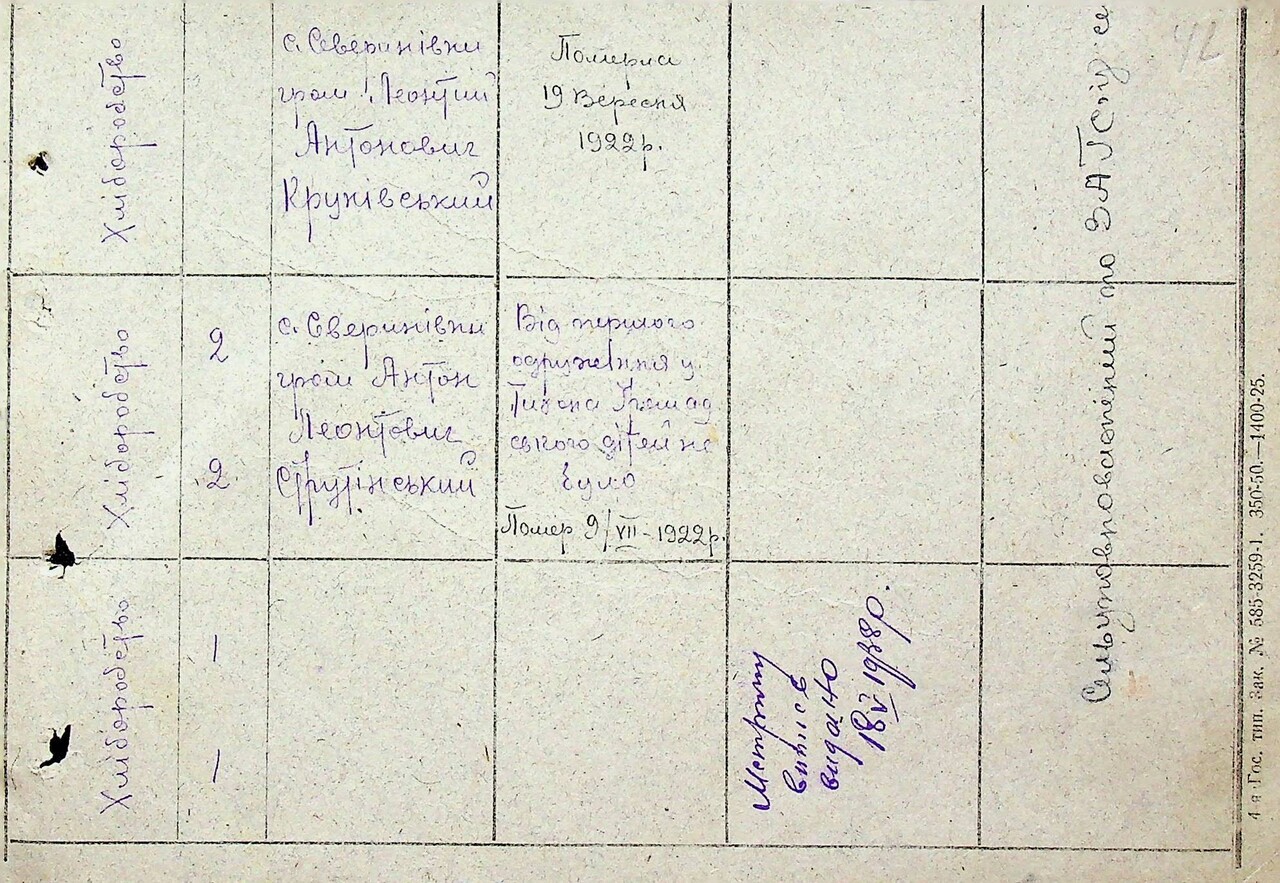 42
Хліборобство
с. Северинівки
гром. Леонтий
Антонович
Крупівський
Померла
19 Вересня
1922р.
Хліборобство
2
2
с. Сверинівки
гром Антон
Леонтович
Струтінський
Від першого
одруження у
Громад
ського дітей не
було
Помер 9/VII-1922р.
Хліборобство
1
1
Метричну
виписв
видано
18/V 1938р.
ЗАГС
4-я Гос. тип. Зак. № 585-3259-1. 350-50.—1400-25.